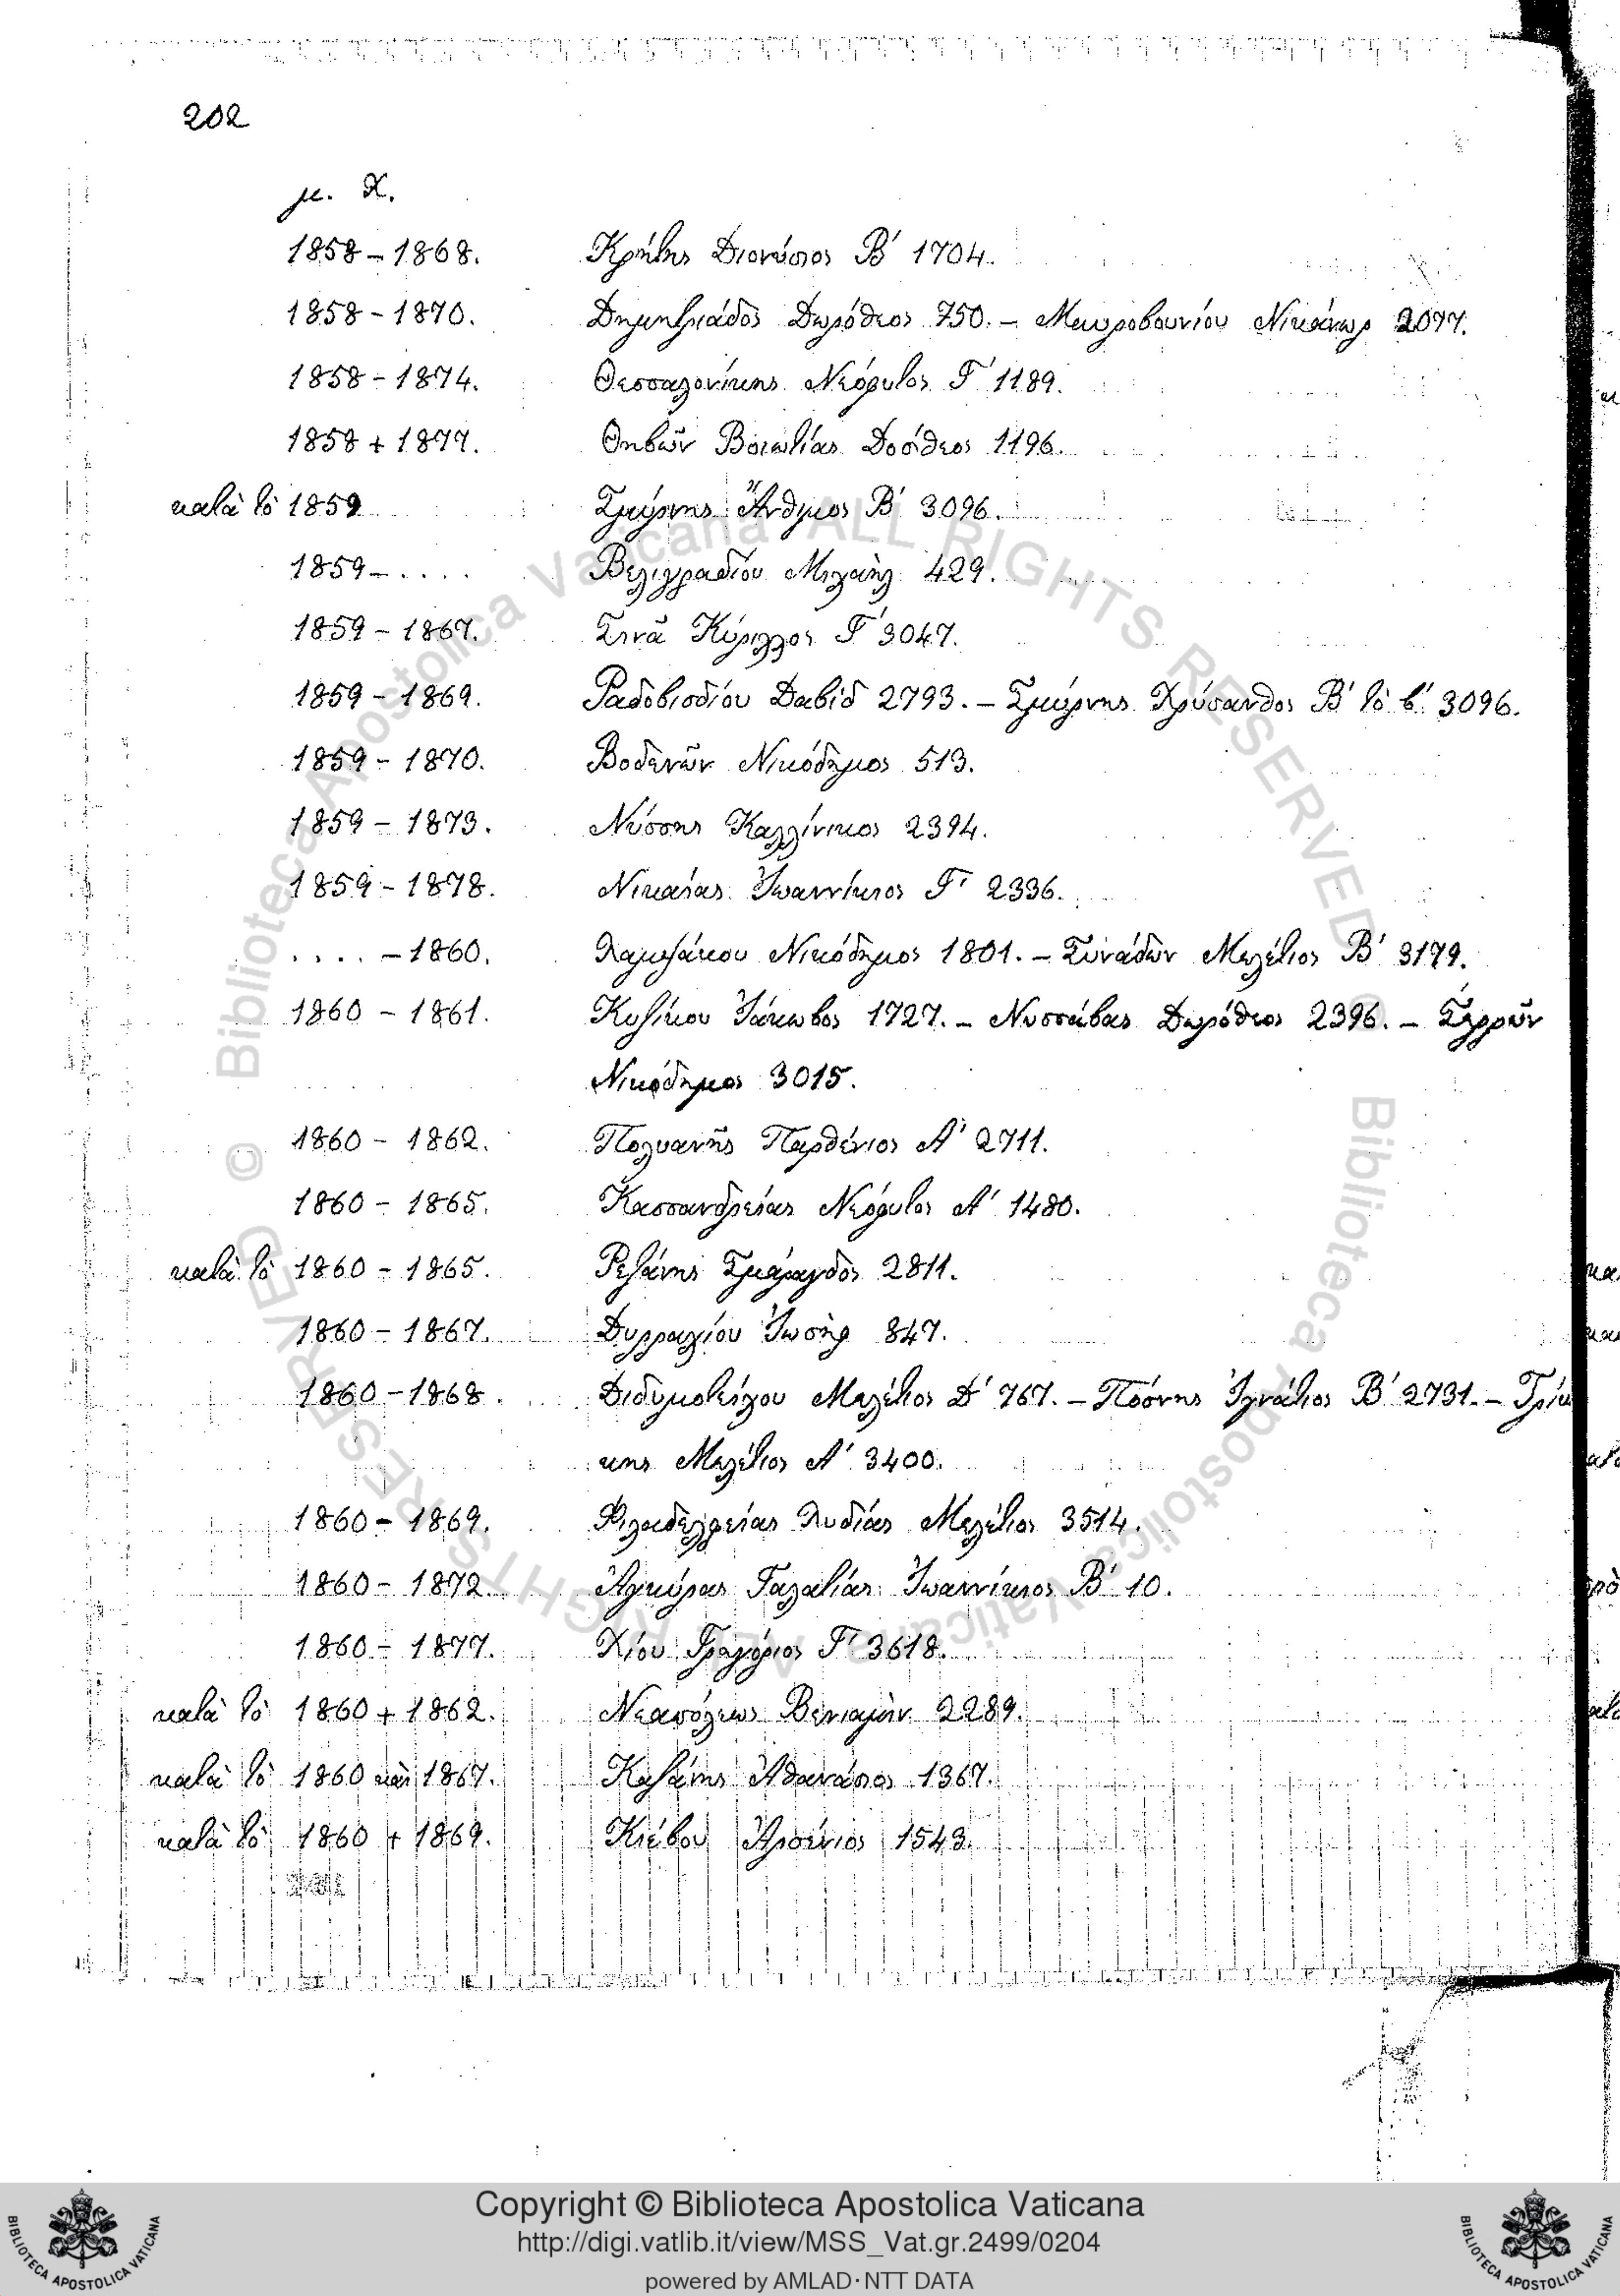 202
μ. Χ.
1858 – 1868. Κρήτης Διονύσιος Β′ 1704.
1858 – 1870. Δημητριάδος Δωρόθεος 750. – Μαυροβουνίου Νικάνωρ 2077.
1858 – 1874. Θεσσαλονίκης Νεόφυτος Γ′ 1189.
1858 + 1877. Θηβῶν Βοιωτίας Δοσίθεος 1196.
κατὰ τὸ 1859 Σμύρνης Ἄνθιμος Β′ 3096.
1859 – .... Βελιγραδίου Μιχαὴλ 429.
1859 – 1867. Σινᾶ Κύριλλος Γ′ 3047.
1859 – 1869. Ραδοβισδίου Δαβὶδ 2793. – Σμύρνης Χρύσανθος Β′ τὸ β′ 3096.
1859 – 1870. Βοδενῶν Νικόδημος 513.
1859 – 1873. Νύσσης Καλλίνικος 2394.
1859 – 1878. Νικαίας Ἰωαννίκιος Γ′ 2336.
.... – 1860. Λαμψάκου Νικόδημος 1801. – Συνάδων Μελέτιος Β′ 3179.
1860 – 1861. Κυζίκου Ἰάκωβος 1727. – Νυσσάβας Δωρόθεος 2396. – Σερρῶν
Νικόδημος 3015.
1860 – 1862. Πολυανῆς Παρθένιος Α′ 2711.
1860 – 1865. Κασσανδρείας Νεόφυτος Α′ 1480.
κατὰ τὸ 1860 – 1865. Ρεζάνης Σμάραγδος 2811.
1860 – 1867. Δυρραχίου Ἰωσὴφ 847.
1860 – 1868. Διδυμοτείχου Μελέτιος Δ′ 767. – Πόσνης Ἰγνάτιος Β′ 2731. – Τρίκ
κης Μελέτιος Α′ 3400.
1860 – 1869. Φιλαδελφείας Λυδίας Μελέτιος 3514.
1860 – 1872. Ἀγκύρας Γαλατίας Ἰωαννίκιος Β′ 10.
1860 – 1877. Χίου Γρηγόριος Γ′ 3618.
κατὰ τὸ 1860 + 1862. Νεαπόλεως Βενιαμὶν 2289.
κατὰ τὸ 1860 καὶ 1867. Καζάνης Ἀθανάσιος 1367.
κατὰ τὸ 1860 + 1869. Κιέβου Ἀρσένιος 1543.
© Biblioteca Apostolica Vaticana ALL RIGHTS RESERVED
© Biblioteca Apostolica Vaticana ALL RIGHTS RESERVED
Copyright © Biblioteca Apostolica Vaticana
http://digi.vatlib.it/view/MSS_Vat.gr.2499/0204
powered by AMLAD·NTT DATA
BIBLIOTECA APOSTOLICA VATICANA
BIBLIOTECA APOSTOLICA VATICANA